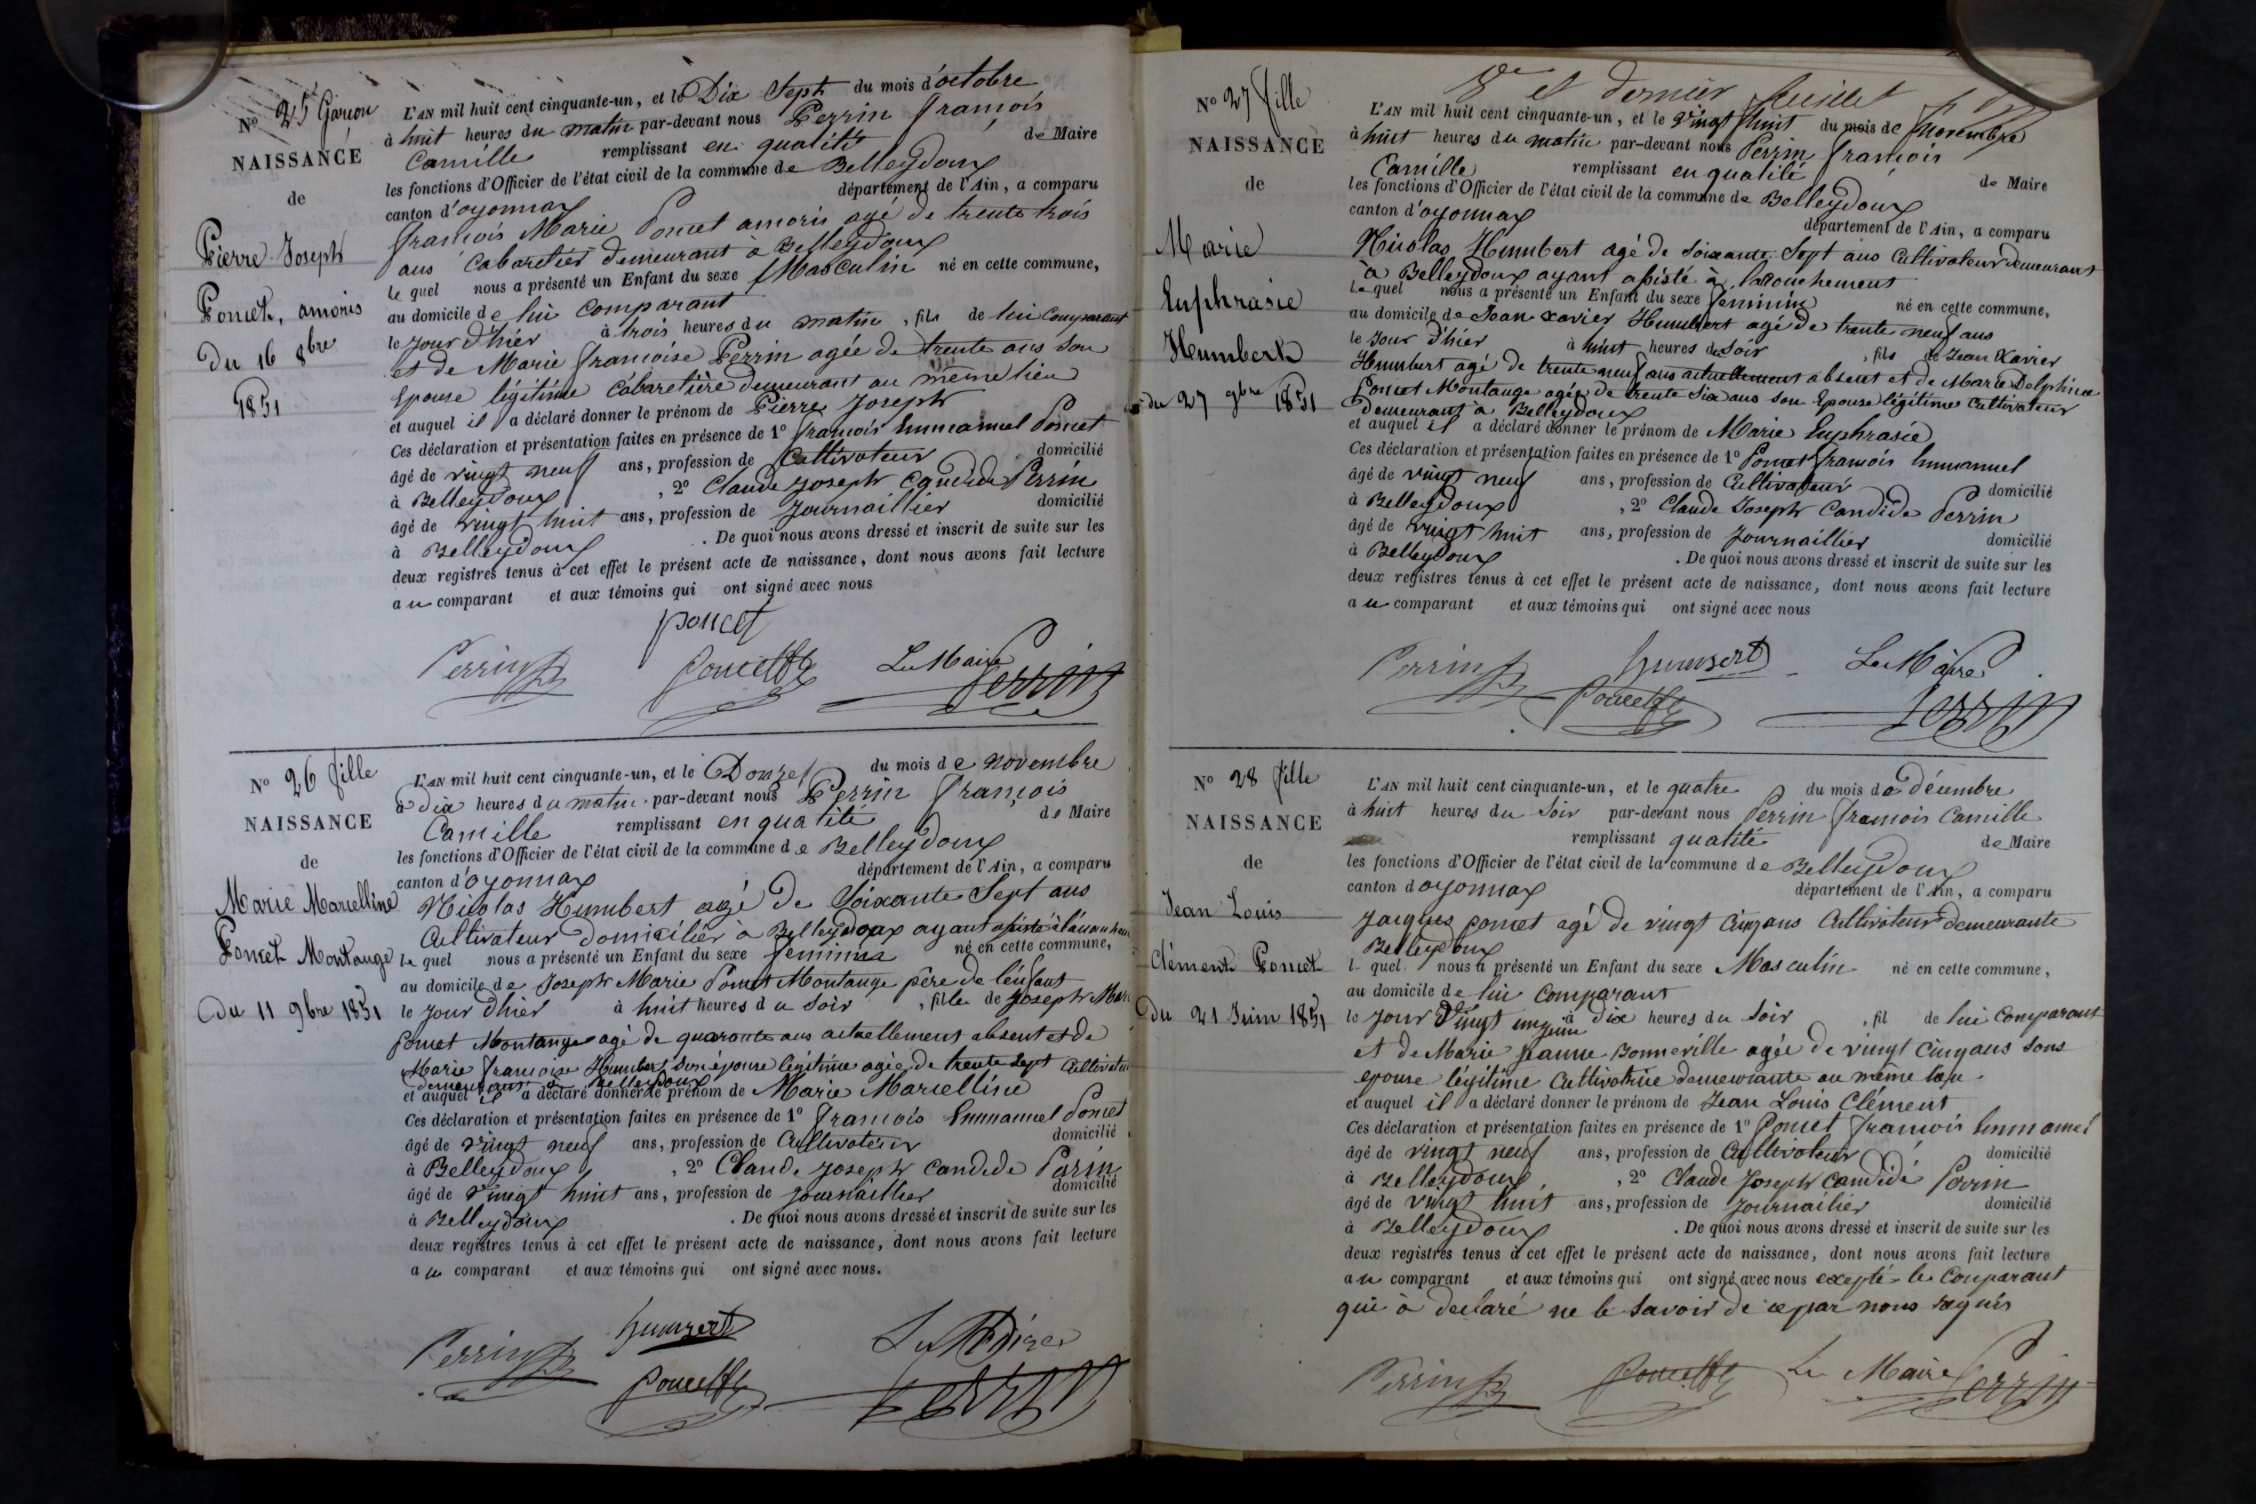 N° 25 Garçon
NAISSANCE
de
Pierre Joseph
Poncet, amoris
du 16 8bre
1851
L'AN mil huit cent cinquante-un, et le Dix Sept du mois d'octobre
à huit heures du matin par-devant nous Perrin françois
Camille remplissant en qualité de Maire
les fonctions d'Officier de l'état civil de la commune de Belleydoux
canton d'oyonnax département de l'Ain, a comparu
françois Marie Poncet amoris agé de trente trois
ans Cabaretier demeurant à Belleydoux
le quel nous a présenté un Enfant du sexe Masculin né en cette commune,
au domicile de lui Comparant
le jour d'hier à trois heures du matin, fils de lui Comparant
et de Marie françoise Perrin agée de trente ans son
Epouse légitime Cabaretière demeurant au même lieu
et auquel il a déclaré donner le prénom de Pierre Joseph
Ces déclaration et présentation faites en présence de 1° françois Emmanuel Poncet
âgé de vingt neuf ans, profession de Cultivateur domicilié
à Belleydoux, 2° Claude Joseph Candide Perrin
âgé de vingt huit ans, profession de Journaillier domicilié
à Belleydoux. De quoi nous avons dressé et inscrit de suite sur les
deux registres tenus à cet effet le présent acte de naissance, dont nous avons fait lecture
au comparant et aux témoins qui ont signé avec nous
poncet
Perrin poncet Le Maire
Perrin
N° 26 fille
NAISSANCE
de
Marie Marcelline
Poncet Montange
du 11 9bre 1851
L'AN mil huit cent cinquante-un, et le Douze du mois de novembre
à dix heures du matin par-devant nous Perrin françois
Camille remplissant en qualité de Maire
les fonctions d'Officier de l'état civil de la commune de Belleydoux
canton d'oyonnax département de l'Ain, a comparu
Nicolas Humbert agé de Soixante Sept ans
Cultivateur domicilier à Belleydoux ayant assisté à
le quel nous a présenté un Enfant du sexe feminin né en cette commune,
au domicile de Joseph Marie Poncet Montange père de l'enfant
le jour d'hier à huit heures du Soir, fille de Joseph Marie
Poncet Montange agé de quarante ans actuellement absent et de
Marie françoise Humbert Son épouse légitime agée de trente Sept
demeurant à Belleydoux
et auquel il a déclaré donner le prénom de Marie Marcelline
Ces déclaration et présentation faites en présence de 1° françois Emmanuel Poncet
âgé de vingt neuf ans, profession de Cultivateur domicilié
à Belleydoux, 2° Claude Joseph Candide Perrin
âgé de vingt huit ans, profession de Journaillier domicilié
à Belleydoux. De quoi nous avons dressé et inscrit de suite sur les
deux registres tenus à cet effet le présent acte de naissance, dont nous avons fait lecture
au comparant et aux témoins qui ont signé avec nous.
humbert
Perrin Le Maire
poncet Perrin
8e et dernier feuillet
N° 27 fille
NAISSANCE
de
Marie
Euphrasie
Humbert
du 27 9bre 1851
L'AN mil huit cent cinquante-un, et le vingt huit du mois de Novembre
à huit heures du matin par-devant nous Perrin françois
Camille remplissant en qualité de Maire
les fonctions d'Officier de l'état civil de la commune de Belleydoux
canton d'oyonnax département de l'Ain, a comparu
Nicolas Humbert agé de soixante Sept ans Cultivateur demeurant
à Belleydoux ayant assisté à
le quel nous a présenté un Enfant du sexe feminin né en cette commune,
au domicile de Jean xavier Humbert agé de trente neuf ans
le Jour d'hier à huit heures du Soir, fils de Jean Xavier
Humbert agé de trente neuf ans actuellement absent et de Marie Delphine
Poncet Montange agée de trente Six ans son Epouse légitime Cultivateur
demeurant à Belleydoux
et auquel il a déclaré donner le prénom de Marie Euphrasie
Ces déclaration et présentation faites en présence de 1° Poncet françois Emmanuel
âgé de vingt neuf ans, profession de Cultivateur domicilié
à Belleydoux, 2° Claude Joseph Candide Perrin
âgé de vingt huit ans, profession de Journaillier domicilié
à Belleydoux. De quoi nous avons dressé et inscrit de suite sur les
deux registres tenus à cet effet le présent acte de naissance, dont nous avons fait lecture
au comparant et aux témoins qui ont signé avec nous
Perrin humbert Le Maire
poncet Perrin
N° 28 fille
NAISSANCE
de
Jean Louis
Clément Poncet
du 21 Juin 1851
L'AN mil huit cent cinquante-un, et le quatre du mois de décembre
à huit heures du Soir par-devant nous Perrin françois Camille
remplissant qualité de Maire
les fonctions d'Officier de l'état civil de la commune de Belleydoux
canton d'oyonnax département de l'Ain, a comparu
Jacques poncet agé de vingt Cinq ans Cultivateur demeurante
Belleydoux
l quel nous a présenté un Enfant du sexe Masculin né en cette commune,
au domicile de lui comparant
le jour vingt un juin à dix heures du Soir, fil de lui Comparant
et de Marie jeanne Bonneville agée de vingt Cinq ans sons
epouse légitime Cultivatrice demeurante au même lieu
et auquel il a déclaré donner le prénom de Jean Louis Clément
Ces déclaration et présentation faites en présence de 1° Poncet françois
âgé de vingt neuf ans, profession de Cultivateur domicilié
à Belleydoux, 2° Claude Joseph Candide Perrin
âgé de vingt huit ans, profession de Journailier domicilié
à Belleydoux. De quoi nous avons dressé et inscrit de suite sur les
deux registres tenus à cet effet le présent acte de naissance, dont nous avons fait lecture
au comparant et aux témoins qui ont signé avec nous excepté le Comparant
qui à declaré ne le savoir de ce par nous requis
Perrin poncet Le Maire Perrin